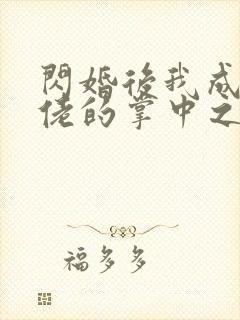 閃婚後我成
佬的掌中之
福多多